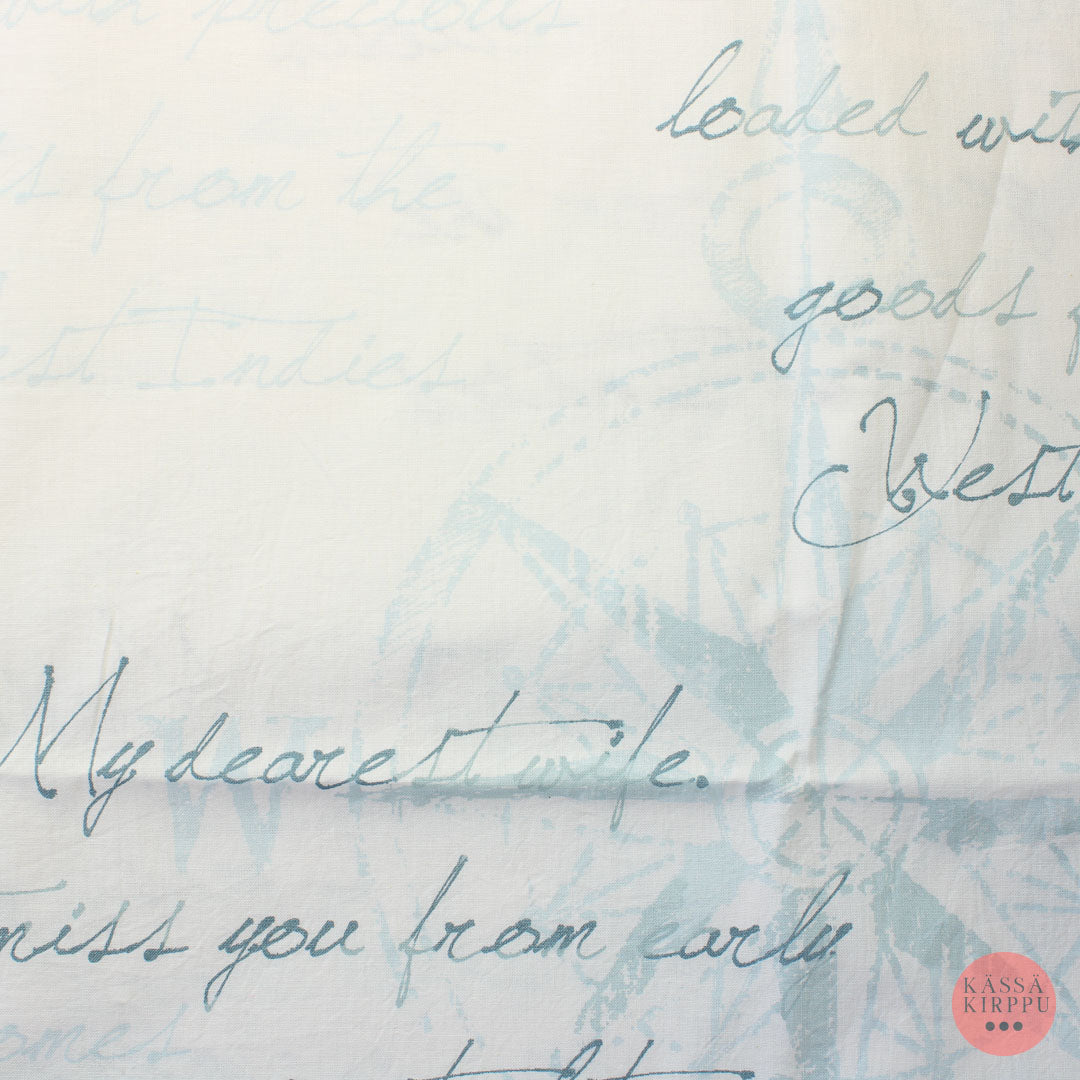 precious
loaded with
s from the
goods
est Indies
West
My dearest wife.
miss you from early
omes
KÄSSÄ
KIRPPU